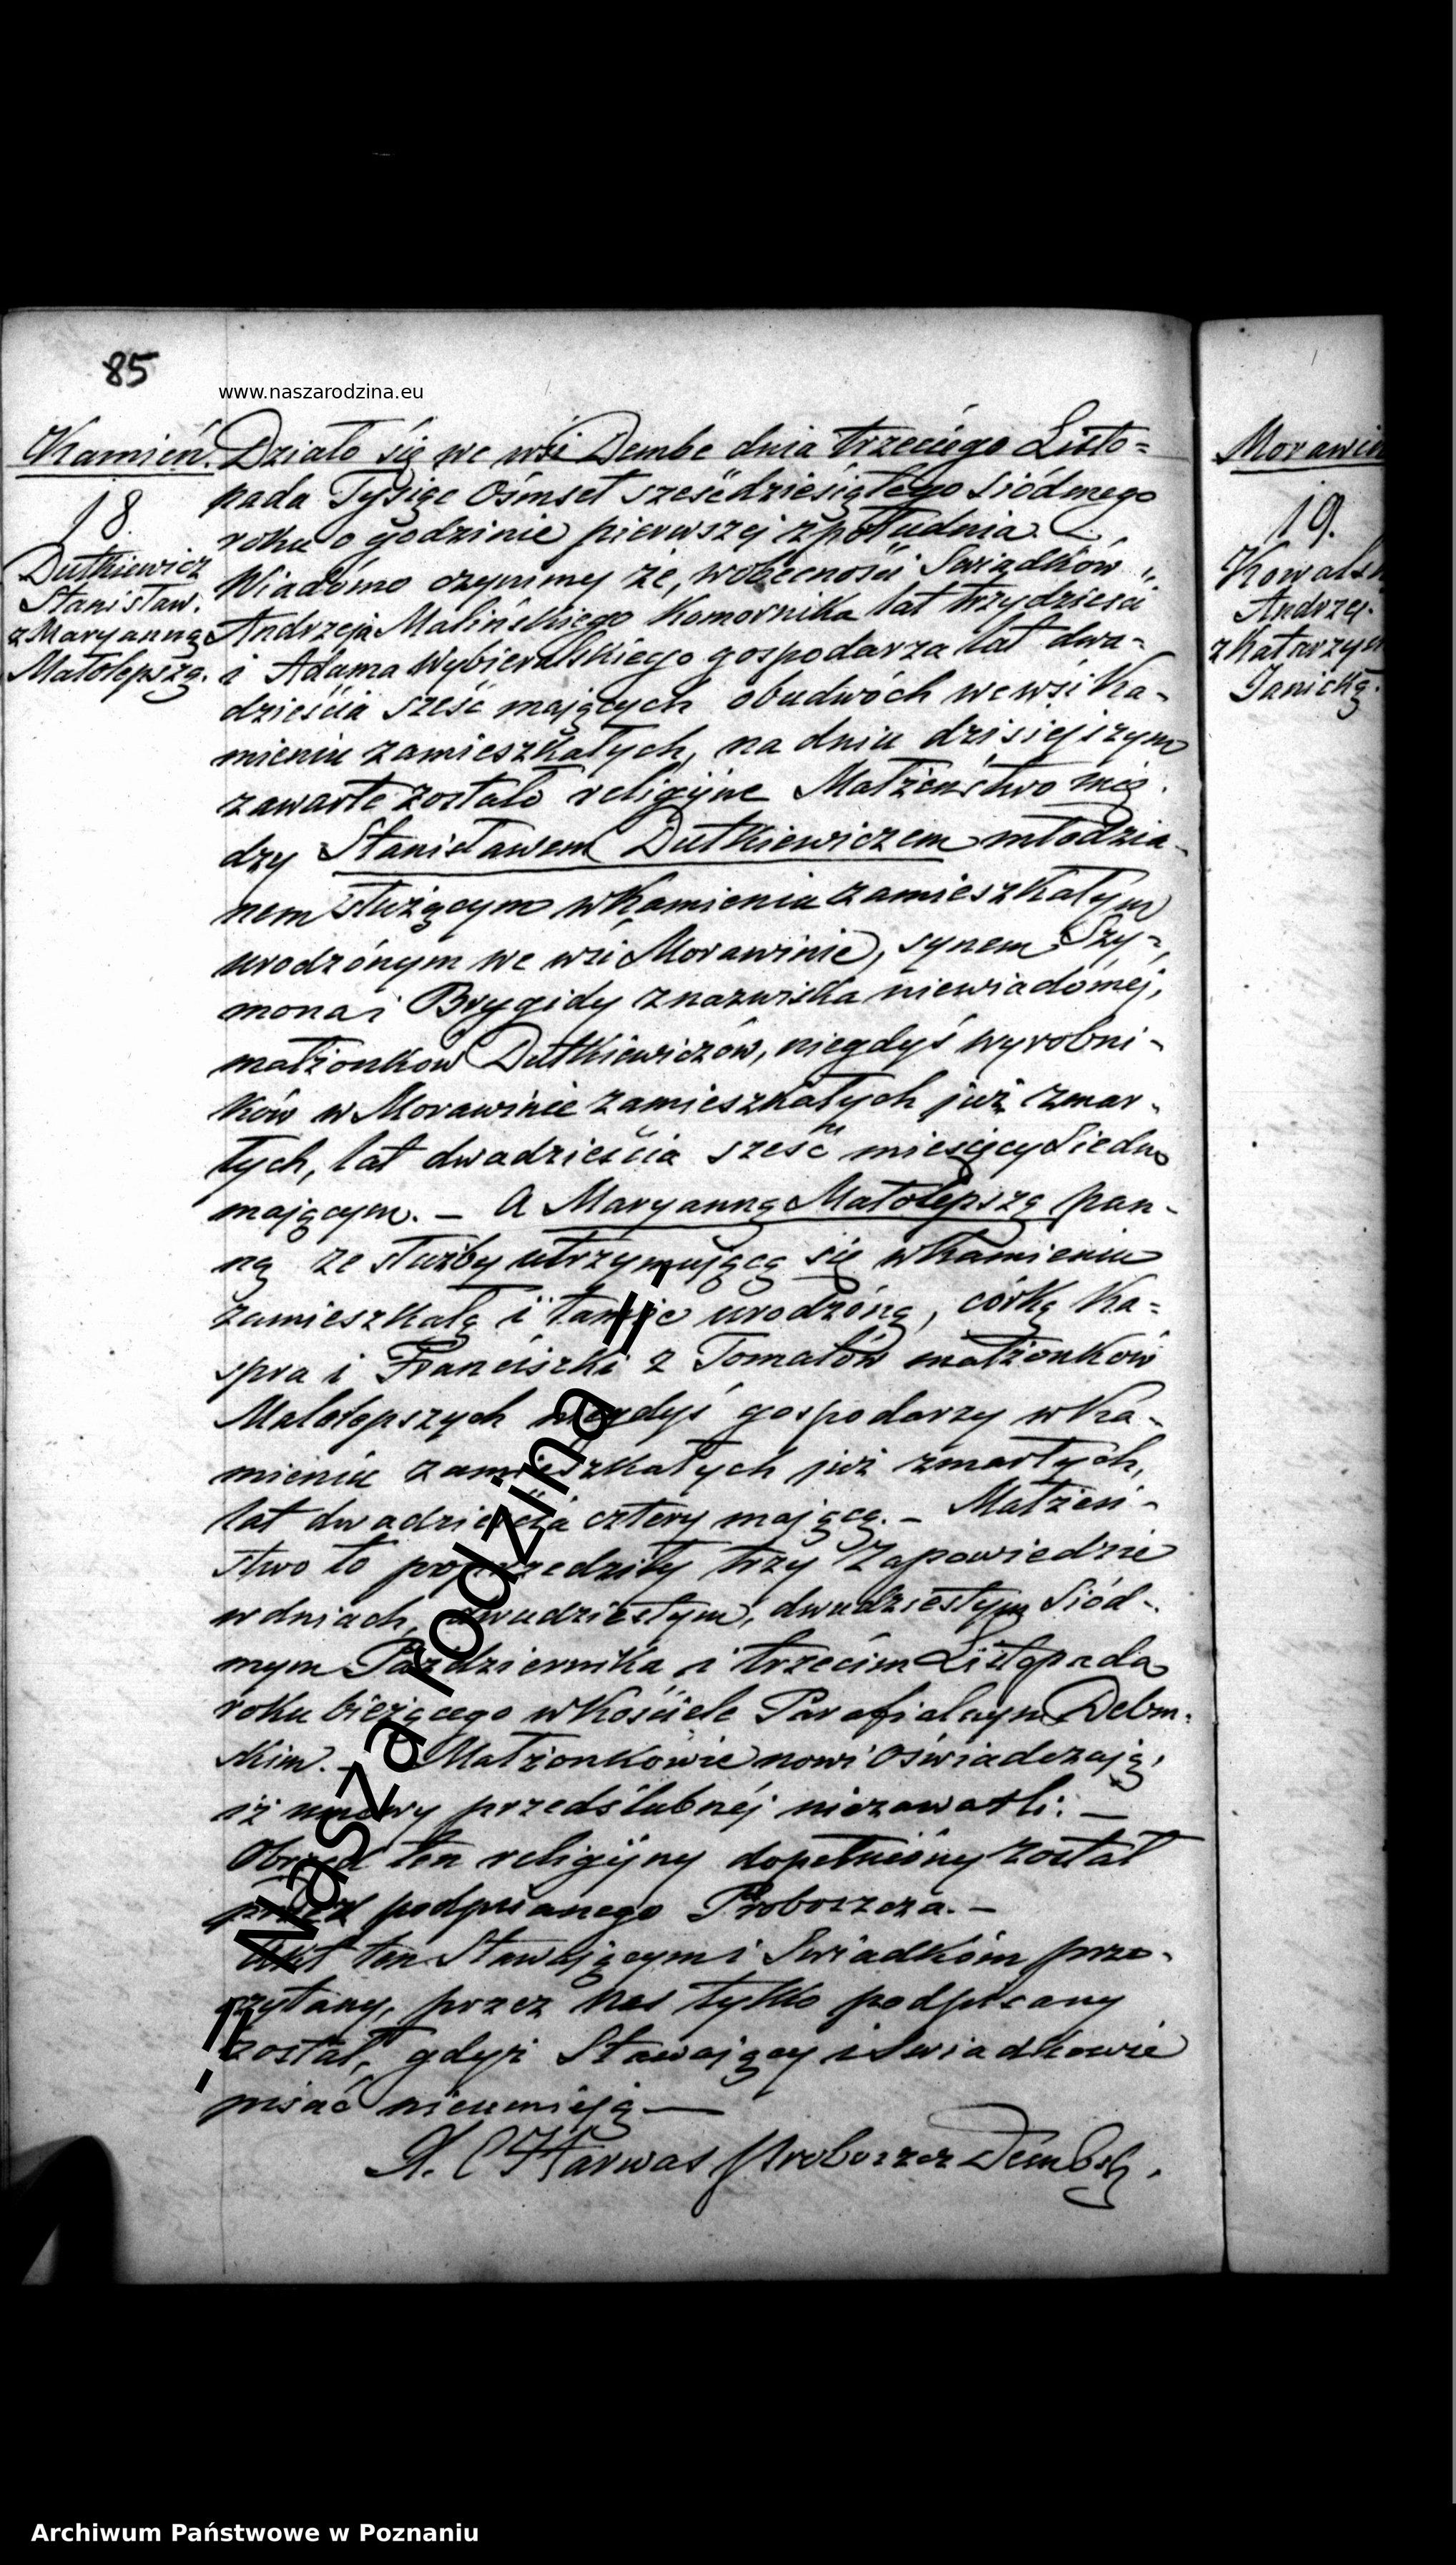 85
www.naszarodzina.eu
Kamień.
18.
Dutkiewicz
Stanisław.
z Maryanną
Małolepszą.
Działo się we wsi Dembe dnia trzeciego Listo=
pada Tysiąc Ośmset sześćdziesiątego siódmego
roku o godzinie pierwszej z południa.
Wiadomo czynimy że, wobecności Swiadków
Andrzeja Malińskiego Komornika lat trzydzieści
i Adama Wybieralskiego gospodarza lat dwa-
dzieścia sześć mających obudwóch we wsi Ka-
mieniu zamieszkałych, na dniu dzisiejszym
zawarte zostało religijne Małżeństwo mię-
dzy Stanisławem Dutkiewiczem młodzia-
nem służącym w Kamieniu zamieszkałym
urodzónym we wsi Morawinie, synem Szy-
mona i Brygidy z nazwiska niewiadomej,
małżonków Dutkiewiczów, niegdyś wyrobni-
ków w Morawinie zamieszkałych już zmar-
łych, lat dwadzieścia sześć miesięcy siedm
mającym. — A Maryanną Małolepszą pan-
ną ze służby utrzymującą się w Kamieniu
zamieszkałą i tamże urodzóną, córką Ka=
spra i Franciszki z Tomałów małżonków
Małolepszych niegdyś gospodarzy w Ka-
mieniu zamieszkałych już zmarłych,
lat dwadzieścia cztery mającą. — Małżeń-
stwo to poprzedziły trzy Zapowiedzie
w dniach, dwudziestym, dwudziestym siód-
mym Października i trzecim Listopada
roku bieżącego w Kościele Parafialnym Debm-
skim. — Małżonkowie nowi Oświadczają,
iż umowy przedślubnéj niezawarli. —
Obrzęd ten religijny dopełniony został
przez podpisanego Proboszcza. —
Akt ten Stawającym i Swiadkóm prze-
czytany, przez Nas tylko podpisany
został, gdyż Stawający i Swiadkowie
pisać nieumieją. —
X. C Harwas Proboszcz Dembsk.
Morawin
19.
Kowalsk
Andrzej.
z Katarzyn
Janicką.
-= Nasza rodzina =-
Archiwum Państwowe w Poznaniu